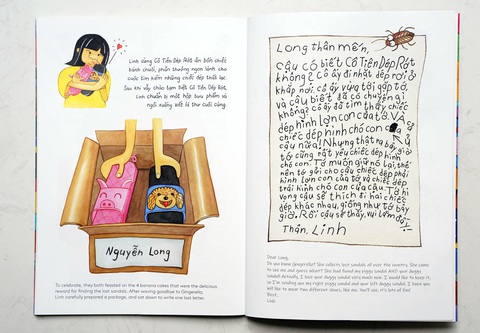 Linh cùng Cô Tiên Dép Rớt ăn bốn chiếc
bánh chuối, phần thưởng ngon lành cho
cuộc tìm kiếm những chiếc dép thất lạc.
Sau khi vẫy chào tạm biệt Cô Tiên Dép Rớt,
Linh chuẩn bị một hộp bưu phẩm và
ngồi xuống viết lá thư cuối cùng.
Nguyễn Long
To celebrate, they both feasted on the 4 banana cakes that were the delicious
reward for finding the lost sandals. After waving goodbye to Gingerella,
Linh carefully prepared a package, and sat down to write one last letter.
Long thân mến,
cậu có biết Cô Tiên Dép Rớt
không? Cô ấy đi nhặt dép rơi ở
khắp nơi. cô ấy vừa tới gặp tớ,
và cậu biết đã có chuyện gì
không? cô ấy đã tìm thấy chiếc
dép hình lợn con của tớ. Và cả
chiếc dép hình chó con của
cậu nữa! Nhưng thật ra bây giờ
tớ cũng rất yêu chiếc dép hình
chó con. Tớ muốn giữ nó lại, thế
nên tớ gửi cho cậu chiếc dép phải
hình lợn con của tớ và chiếc dép
trái hình chó con của cậu. Tớ hi
vọng cậu sẽ thích đi hai chiếc
dép khác nhau, giống như tớ bây
giờ. Rồi cậu sẽ thấy, vui lắm đó!
Thân, Linh
Dear Long,
Do you know Gingerella? She collects lost sandals all over the country. She came
to see me and guess what? She had found my piggy sandal! AND your doggy
sandal! Actually, I love your doggy sandal very much now. I would like to keep it,
so I'm sending you my right piggy sandal and your left doggy sandal. I hope you
will like to wear two different shoes, like me. You'll see, it's lots of fun!
Best,
Linh